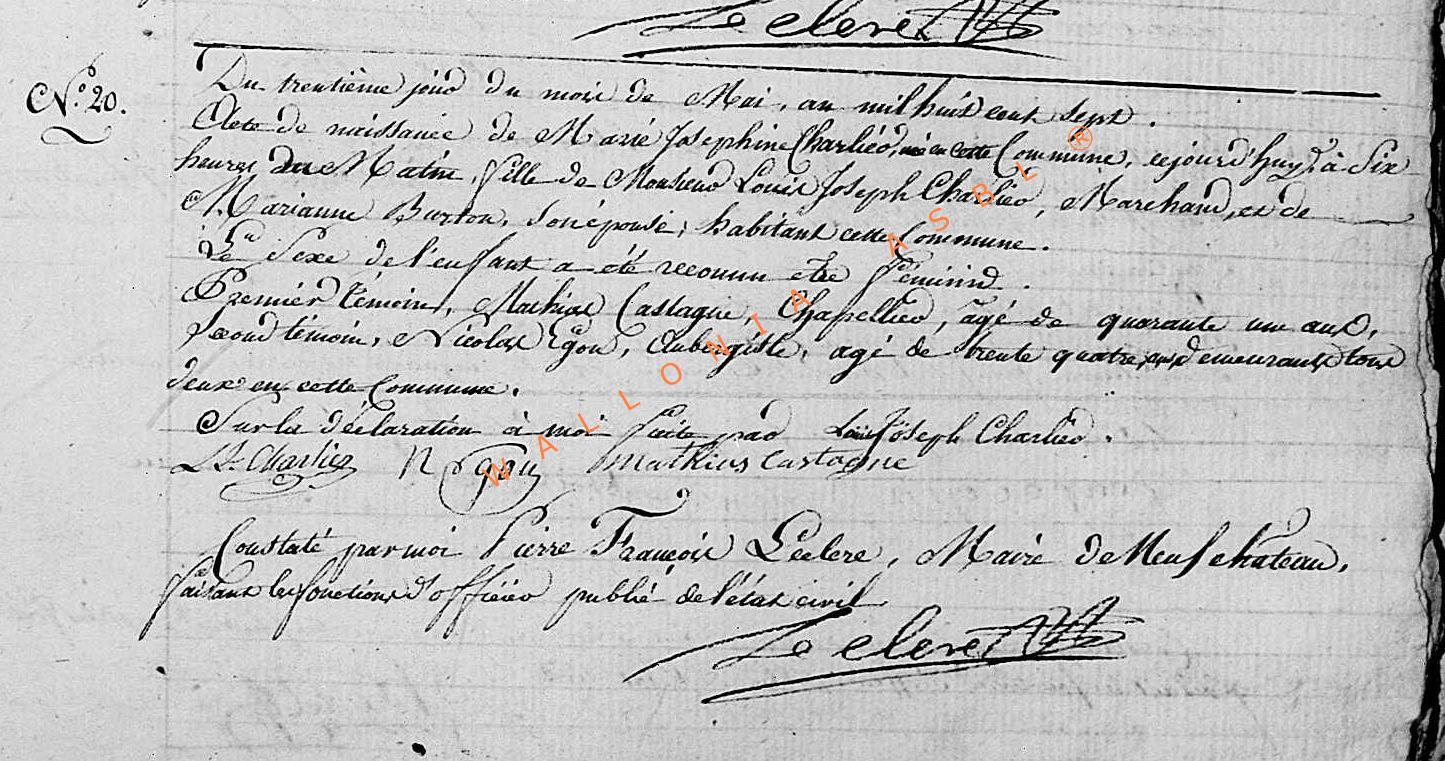 Leclere
N.° 20.
Du trentième jour du mois de Mai, an mil huit cent sept.
Acte de naissance de Marie Josephine Charlier, née en cette Commune, cejourd'huy à Six
heures du Matin, fille de Monsieur Louis Joseph Charlier, Marchand, et de
Marianne Burton, son épouse, habitant cette Commune.
Le Sexe de l'enfant a été reconnu être féminin.
Premier témoin, Mathias Castagne, Chapellier, âgé de quarante un ans,
second témoin, Nicolas Egon, Aubergiste, agé de trente quatre ans, demeurant tous
deux en cette Commune.
Sur la déclaration à moi faite par Louis Joseph Charlier.
L J Charlier N Egon Mathias Castagne
Constaté par moi Pierre François Leclere, Maire de Neufchateau,
faisant les fonctions d'officier public de l'état civil
Leclere
WALLONIA ASBL ®